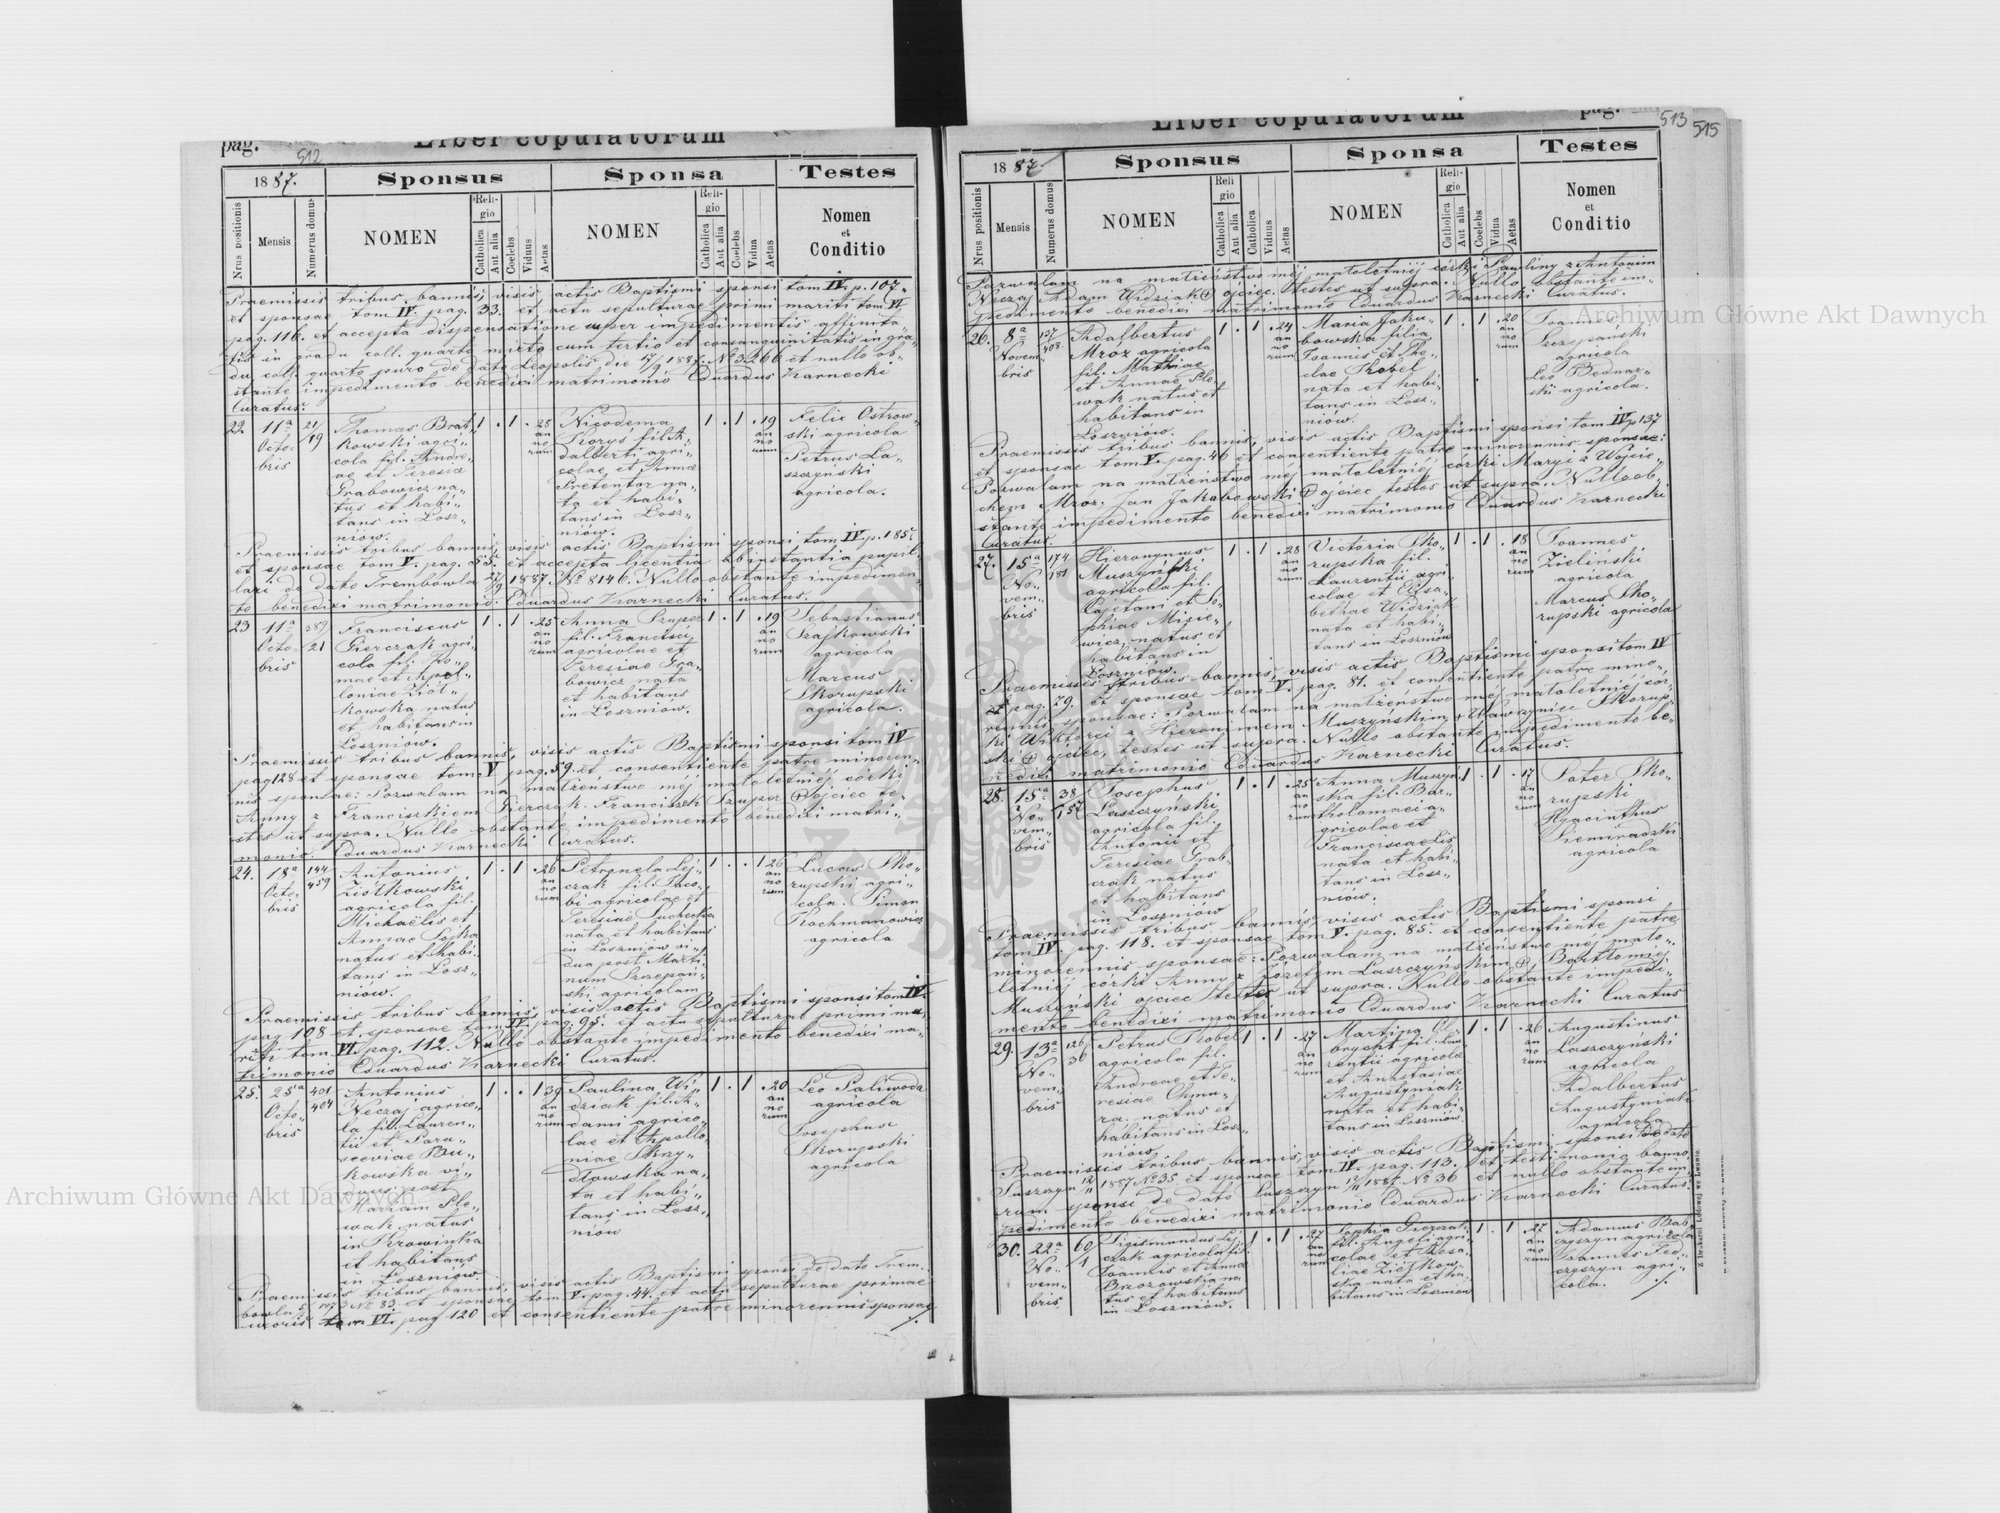 pag. 512
Liber copulatorum
1887.
Sponsus
Sponsa
Testes
Nrus positionis
Mensis
Numerus domus
NOMEN
Religio
Catholica
Aut alia
Coelebs
Viduus
Aetas
NOMEN
Religio
Catholica
Aut alia
Coelebs
Vidua
Aetas
Nomen
et
Conditio
Praemissis tribus bannis, visis actis Baptismi sponsi tom IV. p. 107
et sponsae tom IV. pag. 33. et actu sepulturae primi mariti tom VI
pag. 116. et accepta dispensatione super impedimentis affinita-
tis in gradu coll. quarto mixto cum tertio et consanguinitatis in gra-
du coll. quarto puro de dato Leopolis die 17/9 1887. No 3266 et nullo ob-
stante impedimento benedixi matrimonio Eduardus Karnecki
Curatus.
22. 11a Octobris 21/19
Thomas Brat-
kowski agri-
cola fil. Andre-
ae et Teresia
Grabowicz na-
tus et habi-
tans in Losz-
niów.
1 . 1 . 28 annorum
Nicodema
Korys fil. A-
dalberti agri-
colae et Annae
Pretentor na-
ta et habi-
tans in Losz-
niów.
1 . 1 . 19 annorum
Felix Ostrow-
ski agricola
Petrus La-
szczyński
agricola.
Praemissis tribus bannis, visis actis Baptismi sponsi tom IV p. 185
et sponsae tom V. pag. 55. et accepta licentia ab instantia pupil-
lari de dato Trembowla 27/9 1887 No 8146. Nullo obstante impedimen-
to benedixi matrimonio. Eduardus Karnecki Curatus.
23 11a Octobris 389/21
Franciscus
Gierczak agri-
cola fil. Tho-
mae et Apol-
loniae Ziół-
kowska natus
et habitans in
Loszniów.
1 . 1 . 25 annorum
Anna Szuper
fil. Francisci
agricolae et
Teresiae Gra-
bowicz nata
et habitans
in Loszniów.
1 . 1 . 19 annorum
Sebastianus
Szajkowski
agricola
Marcus
Skorupski
agricola.
Praemissis tribus bannis, visis actis Baptismi sponsi tom IV
pag 128 et sponsae tom V pag. 59. et consentiente patre minoren-
nis sponsae: Pozwalam na małżeństwo mej małoletniej córki
Anny z Franciszkiem Gierczak. Franciszek Szuper + ojciec te-
stes ut supra. Nullo obstante impedimento benedixi matri-
monio. Eduardus Karnecki Curatus.
24. 18a Octobris 144/459
Antonius
Ziółkowski
agricola fil.
Michaëlis et
Annae Sojka
natus et habi-
tans in Losz-
niów.
1 . 1 . 26 annorum
Petronela Lej-
czak fil. Jaco-
bi agricolae et
Teresiae Suchecka
nata et habitans
in Loszniów vi-
dua post Marti-
num Szczepań-
ski agricolam
1 . . 1 26 annorum
Lucas Sko-
rupski agri-
cola. Simon
Kochmanowicz
agricola
Praemissis tribus bannis, visis actis Baptismi sponsi tom IV.
pag 108 et sponsae tom IV pag. 95. et actu sepulturae primi ma-
riti tom VI. pag. 112. Nullo obstante impedimento benedixi ma-
trimonio Eduardus Karnecki Curatus.
25. 25a Octobris 401/404
Antonius
Neczaj agrico-
la fil. Lauren-
tii et Para-
sceviae Bu-
kowska vi-
duus post
Mariam Ple-
wak natus
in Krowinka
et habitans
in Loszniów.
1 . . 1 39 annorum
Paulina Wi-
dziak fil. A-
dami agrico-
lae et Apollo-
niae Skrzy-
dłowska na-
ta et habi-
tans in Losz-
niów
1 . 1 . 20 annorum
Leo Paliwoda
agricola
Josephus
Skorupski
agricola
Praemissis tribus bannis, visis actis Baptismi sponsi de dato Trem-
bowla No 83 et sponsae tom V. pag. 44. et actu sepulturae primae
uxoris tom VI. pag 120 et consentiente patre minorennis sponsae
./.
pag. 513 515
Liber copulatorum
1887
Sponsus
Sponsa
Testes
Nrus positionis
Mensis
Numerus domus
NOMEN
Religio
Catholica
Aut alia
Catholica
Viduus
Aetas
NOMEN
Religio
Catholica
Aut alia
Coelebs
Vidua
Aetas
Nomen
et
Conditio
Pozwalam na małżeństwo mej małoletniej córki Pauliny z Antonim
Neczaj Adam Widziak + ojciec. Testes ut supra. Nullo obstante im-
pedimento benedixi matrimonio Eduardus Karnecki Curatus.
26. 8a Novembris 137/408
Adalbertus
Mroz agricola
fil. Mathiae
et Annae Ple-
wak natus et
habitans in
Loszniów.
1 . 1 . 24 annorum
Maria Jaku-
bowska filia
Joannis et The-
clae Skobel
nata et habi-
tans in Losz-
niów.
1 . 1 . 20 annorum
Joannes
Szczepański
agricola
Leo Bednar-
ski agricola.
Praemissis tribus bannis, visis actis Baptismi sponsi tom IV p 137
et sponsae tom V. pag. 46 et consentiente patre minorennis sponsae:
Pozwalam na małżeństwo mej małoletniej córki Maryi z Wojcie-
chem Mroz. Jan Jakubowski + ojciec, testes ut supra. Nullo ob-
stante impedimento benedixi matrimonio Eduardus Karnecki
Curatus
27. 15a Novembris 174/181
Hieronymus
Muszyński
agricola fil.
Cajetani et So-
phiae Misie-
wicz, natus et
habitans in
Loszniów.
1 . 1 . 28 annorum
Victoria Sko-
rupska fil.
Laurentii agri-
colae et Elisa-
bethae Widziak
nata et habi-
tans in Loszniów
1 . 1 . 18 annorum
Joannes
Zieliński
agricola
Marcus Sko-
rupski agricola
Praemissis tribus bannis, visis actis Baptismi sponsi tom IV
et pag. 79. et sponsae tom V. pag. 81. et consentiente patre mino-
rennis sponsae: Pozwalam na małżeństwo mej małoletniej cór-
ki Wiktoryi z Hieronimem Muszyńskim + Wawrzyniec Skorup-
ski + ojciec, testes ut supra. Nullo obstante impedimento be-
nedixi matrimonio Eduardus Karnecki Curatus.
28. 15a Novembris 38/157
Josephus
Laszczyński
agricola fil.
Antonii et
Teresiae Grab-
czak natus
et habitans
in Loszniów
1 . 1 . 25 annorum
Anna Muszyń-
ska fil. Bar-
tholomaei a-
gricolae et
Franciscae Lis
nata et habi-
tans in Losz-
niów.
1 . 1 . 17 annorum
Soter Sko-
rupski
Hyacinthus
Siemiradzki
agricola
Praemissis tribus bannis, visis actis Baptismi sponsi
tom IV. pag. 118. et sponsae tom V. pag. 85. et consentiente patre
minorennis sponsae: Pozwalam na małżeństwo mej mało-
letniej córki Anny z Józefem Laszczyńskim + Bartłomiej
Muszyński ojciec testes ut supra. Nullo obstante impedi-
mento benedixi matrimonio Eduardus Karnecki Curatus
29. 13a Novembris 126/36
Petrus Skobel
agricola fil.
Andreae et Te-
resiae Chmu-
ra. natus et
habitans in Losz-
niów.
1 . 1 . 27 annorum
Martina Ol-
brycht fil. Lau-
rentii agricolae
et Anastasiae
Augustyniak
nata et habi-
tans in Loszniów
1 . 1 . 26 annorum
Augustinus
Laszczyński
agricola
Adalbertus
Augustyniak
agricola
Praemissis tribus bannis, visis actis Baptismi sponsi de dato
Suszczyn 12/11 1887 No 35. et sponsae tom IV. pag. 113. et testimonio banno-
rum sponsi de dato Suszczyn 12/11 1887 No 36 et nullo obstante im-
pedimento benedixi matrimonio Eduardus Karnecki Curatus.
30. 22a Novembris 60/1
Sigismundus Lej-
czak agricola fil.
Joannis et Annae
Brzozowska na-
tus et habitans
in Loszniów.
1 . 1 . 27 annorum
Sophia Gierczak
fil. Angeli agri-
colae et Rosa-
liae Ziółkow-
ska nata et ha-
bitans in Loszniów
1 . 1 . 27 annorum
Adamus Bab-
czyszyn agricola
Joannes Fed-
czyszyn agri-
cola.
./.
Z Drukarni Ludowej we Lwowie.
Archiwum Główne Akt Dawnych
Archiwum Główne Akt Dawnych